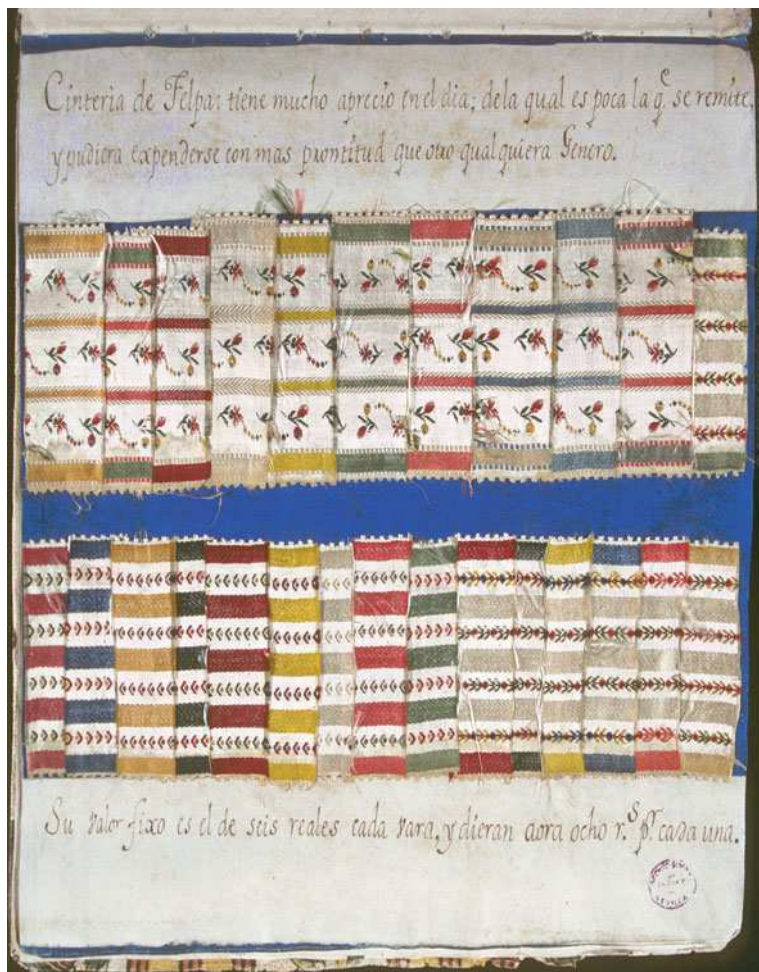 Cinteria de Felpa: tiene mucho aprecio en el dia; dela qual es poca la q.e se remite,
y pudiera expenderse con mas prontitud que otro qualquiera Genero.
Su valor fixo es el de seis reales cada vara, y dieran aora ocho r.s p.r cada una.
SEVILLA